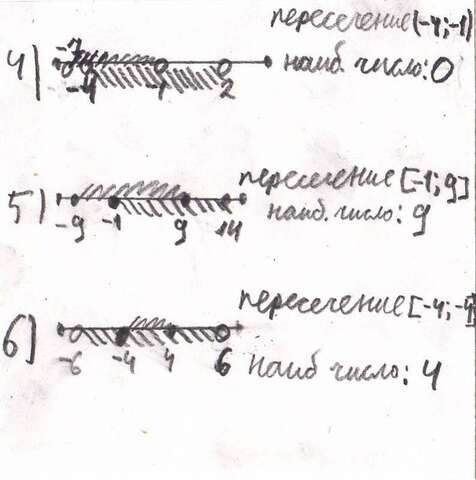 пересечение(-4;-1)
4) -7 -4 -1 2 наиб. число: 0
пересечение[-1;9]
5) -9 -1 9 14 наиб. число: 9
пересечение[-4;-4]
6) -6 -4 4 6 наиб число: 4